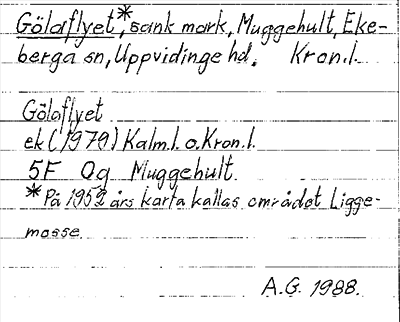 Gölaflyet*, sank mark, Muggehult, Eke-
berga sn, Uppvidinge hd. Kron.l.
Gölaflyet
ek (1979) Kalm.l. o. Kron.l.
5F 0g Muggehult.
* På 1952 års karta kallas området Ligge-
mosse.
A.G. 1988.